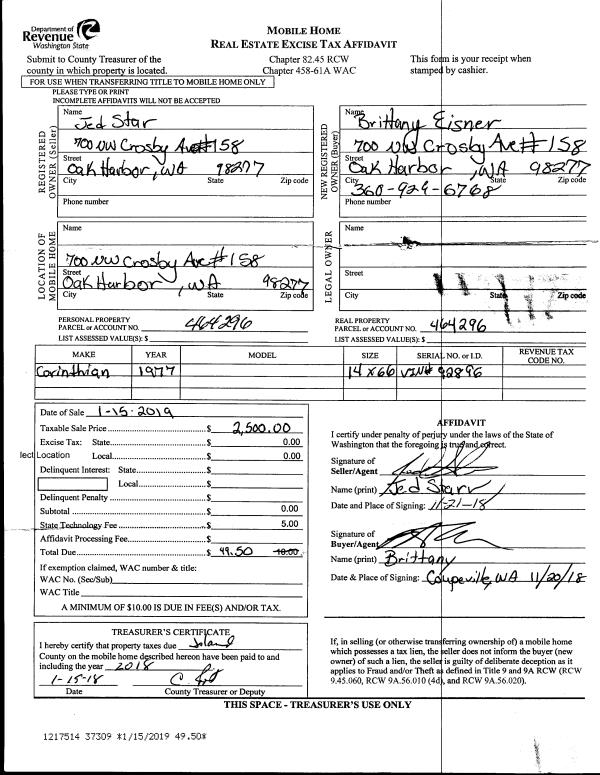 Department of
Revenue
Washington State
MOBILE HOME
REAL ESTATE EXCISE TAX AFFIDAVIT
Submit to County Treasurer of the
county in which property is located.
Chapter 82.45 RCW
Chapter 458-61A WAC
This form is your receipt when
stamped by cashier.
FOR USE WHEN TRANSFERRING TITLE TO MOBILE HOME ONLY
PLEASE TYPE OR PRINT
INCOMPLETE AFFIDAVITS WILL NOT BE ACCEPTED
REGISTERED
OWNER (Seller)
Name
Jed Star
700 NW Crosby Ave #158
Street
Oak Harbor, WA 98277
City State Zip code
Phone number
NEW REGISTERED
OWNER (Buyer)
Name
Brittany Eisner
700 NW Crosby Ave #158
Street
Oak Harbor, WA 98277
City State Zip code
360-929-6768
Phone number
LOCATION OF
MOBILE HOME
Name
700 NW Crosby Ave #158
Street
Oak Harbor, WA 98277
City State Zip code
LEGAL OWNER
Name
Street
City State Zip code
PERSONAL PROPERTY
PARCEL or ACCOUNT NO. 464296
LIST ASSESSED VALUE(S): $
REAL PROPERTY
PARCEL or ACCOUNT NO. 464296
LIST ASSESSED VALUE(S): $
MAKE YEAR MODEL SIZE SERIAL NO. or I.D. REVENUE TAX CODE NO.
Corinthian 1977 14 x 66 VIN# 92896
Date of Sale 1-15-2019
Taxable Sale Price $ 2,500.00
Excise Tax: State $ 0.00
lect Location Local $ 0.00
Delinquent Interest: State $
Local $
Delinquent Penalty $
Subtotal $ 0.00
State Technology Fee $ 5.00
Affidavit Processing Fee $
Total Due $ 49.50 10.00
If exemption claimed, WAC number & title:
WAC No. (Sec/Sub)
WAC Title
A MINIMUM OF $10.00 IS DUE IN FEE(S) AND/OR TAX.
AFFIDAVIT
I certify under penalty of perjury under the laws of the State of
Washington that the foregoing is true and correct.
Signature of
Seller/Agent
Name (print) Jed Starr
Date and Place of Signing: 11-21-18
Signature of
Buyer/Agent
Name (print) Brittany
Date & Place of Signing: Coupeville, WA 11/20/18
TREASURER'S CERTIFICATE
I hereby certify that property taxes due Island
County on the mobile home described hereon have been paid to and
including the year 2018
1-15-18
Date County Treasurer or Deputy
If, in selling (or otherwise transferring ownership of) a mobile home
which possesses a tax lien, the seller does not inform the buyer (new
owner) of such a lien, the seller is guilty of deliberate deception as it
applies to Fraud and/or Theft as defined in Title 9 and 9A RCW (RCW
9.45.060, RCW 9A.56.010 (4d), and RCW 9A.56.020).
THIS SPACE - TREASURER'S USE ONLY
1217514 37309 *1/15/2019 49.50*